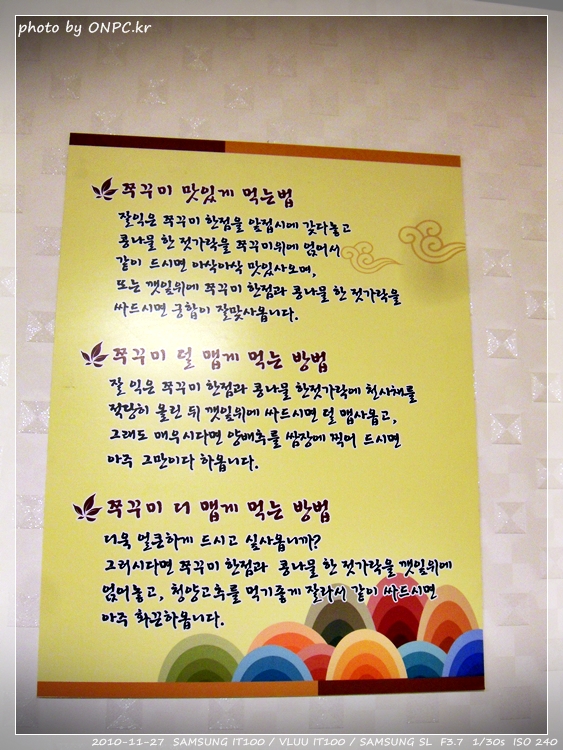 photo by ONPC.kr
쭈꾸미 맛있게 먹는법
잘익은 쭈꾸미 한점을 앞접시에 갖다놓고
콩나물 한 젓가락을 쭈꾸미위에 얹어서
같이 드시면 아삭아삭 맛있사오며,
또는 깻잎위에 쭈꾸미 한점과 콩나물 한 젓가락을
싸드시면 궁합이 잘맞사옵니다.
쭈꾸미 덜 맵게 먹는 방법
잘 익은 쭈꾸미 한점과 콩나물 한젓가락에 천사채를
적당히 올린 뒤 깻잎위에 싸드시면 덜 맵사옵고,
그래도 매우시다면 양배추를 쌈장에 찍어 드시면
아주 그만이다 하옵니다.
쭈꾸미 더 맵게 먹는 방법
더욱 얼큰하게 드시고 싶사옵니까?
그러시다면 쭈꾸미 한점과 콩나물 한 젓가락을 깻잎위에
얹어놓고, 청양고추를 먹기좋게 잘라서 같이 싸드시면
아주 화끈하옵니다.
2010-11-27 SAMSUNG IT100 / VLUU IT100 / SAMSUNG SL F3.7 1/30s ISO 240